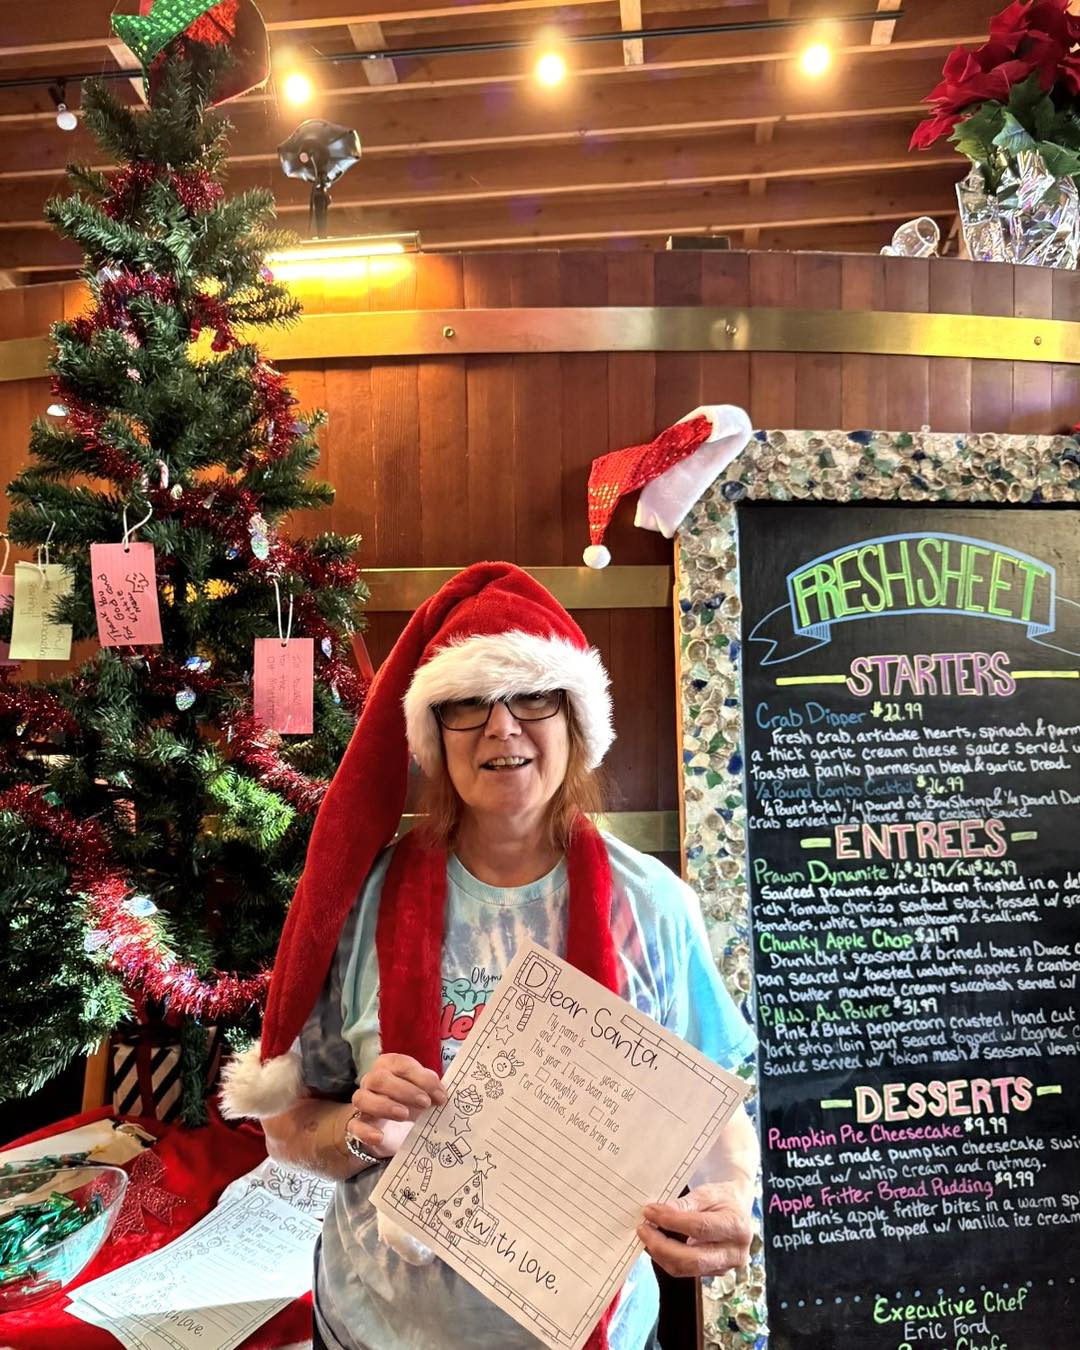 Thank you
God and
the
Olym
Dear Santa,
My name is
and I am years old
This year I have been very
naughty nice
For Christmas, please bring me
With Love,
Dear Santa
Love,
FRESH SHEET
STARTERS
Crab Dipper $22.99
Fresh crab, artichoke hearts, spinach & parm
a thick garlic cream cheese sauce served w
toasted panko parmesan blend & garlic bread.
1/2 Pound Combo Cocktail $26.99
1/2 Pound total, 1/4 pound of Bay Shrimp & 1/4 pound Dun
Crab served w/ a House made cocktail sauce.
ENTREES
Prawn Dynamite 1/2 $21.99/Full $26.99
Sauteed prawns, garlic & bacon finished in a de
rich tomato chorizo seafood stock, tossed w/ gra
tomatoes, white beans, mushrooms & scallions.
Chunky Apple Chop $21.99
Drunk Chef seasoned & brined, bone in Duroc
pan seared w/ toasted walnuts, apples & cranbe
in a butter mounted creamy succotash served w/
P.N.W. Au Poivre $31.99
Pink & Black peppercorn crusted, hand cut
York strip loin pan seared topped w/ Cognac C
sauce served w/ Yokon mash & seasonal veggi
DESSERTS
Pumpkin Pie Cheesecake $9.99
House made pumpkin cheesecake swi
topped w/ whip cream and nutmeg.
Apple Fritter Bread Pudding $9.99
Lattin's apple fritter bites in a warm sp
apple custard topped w/ vanilla ice cream
Executive Chef
Eric Ford
Chefs